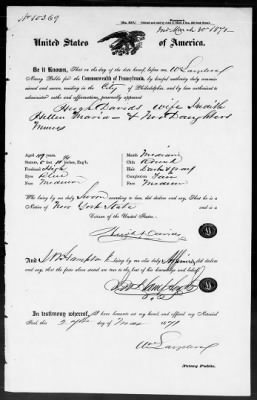 No 10369
March 30 1871
United States of America.
Be it Known, That on the day of the date hereof, before me, Wm
Notary Public for the Commonwealth of Pennsylvania, by lawful authority duly commissioned
and sworn, residing in the City of Philadelphia, and by law authorized to
administer oaths and affirmations, personally appeared
Hugh Davids wife Judith
Hellen Maria & two Daughters
Minors
Aged 49 years
Mouth Medium
Stature 5 feet 10 inches, Eng'h
Chin Round
Forehead High
Hair Dark & Gray
Eyes Blue
Complexion Fair
Nose Medium
Face Medium
Who being by me duly Sworn according to law, did declare and say, That he is a
Native of New York State and is a
Citizen of the United States.
Hugh Davids
And being by me also duly Affirmed did declare
and say, that the facts above stated are true to the best of his knowledge and belief.
In testimony whereof, I have hereunto set my hand, and affixed my Notarial
Seal, this day of 1871
Wm
Notary Public.